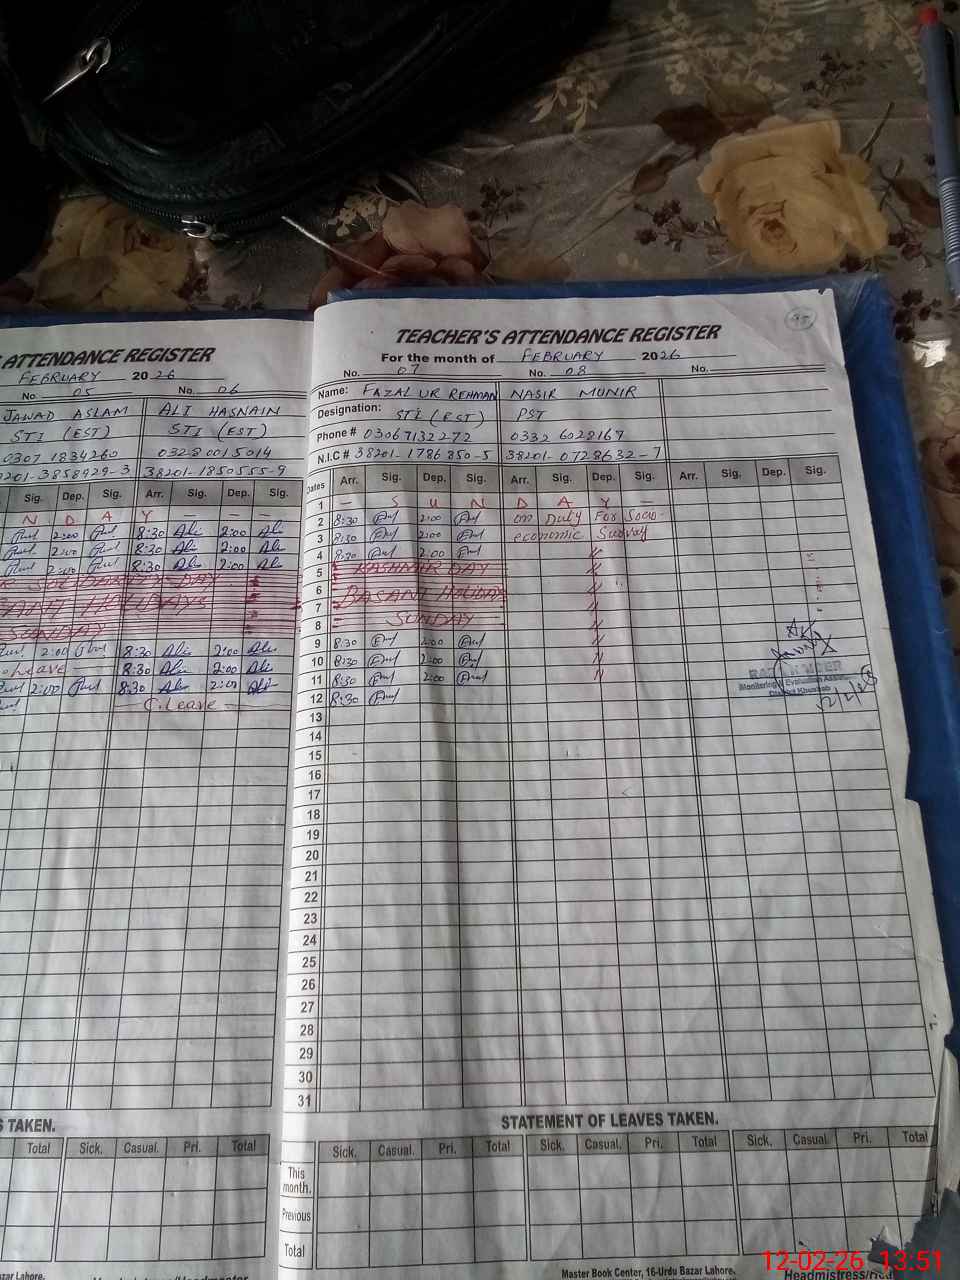 ATTENDANCE REGISTER
FEBRUARY 2026
No. 05 No. 06
JAWAD ASLAM ALI HASNAIN
STI (EST) STI (EST)
0307 1834260 0328 0015014
201-3858929-3 38201-1850555-9
Sig. Dep. Sig. Arr. Sig. Dep. Sig.
N D A Y - - -
2:00 8:30 Ali 2:00 Ali
2:00 8:30 Ali 2:00 Ali
2:00 8:30 Ali 2:00 Ali
SOLIDARITY DAY
HOLIDAYS
SUNDAY
2:00 8:30 Ali 2:00 Ali
Leave 8:30 Ali 2:00 Ali
2:00 8:30 Ali 2:00 Ali
C. Leave
S TAKEN.
Total Sick. Casual. Pri. Total
95
TEACHER'S ATTENDANCE REGISTER
For the month of FEBRUARY 2026
No. 07 No. 08 No.
Name: FAZAL UR REHMAN NASIR MUNIR
Designation: STI (EST) PST
Phone # 03067132272 0332 6028167
N.I.C # 38201-1786850-5 38201-0728632-7
Dates Arr. Sig. Dep. Sig. Arr. Sig. Dep. Sig. Arr. Sig. Dep. Sig.
1 - S U N D A Y -
2 8:30 2:00 on Duty For Socio-
3 8:30 2:00 economic Survay
4 8:30 2:00 "
5 KASHMIR DAY "
6 BASANT HOLIDAY "
7 "
8 SUNDAY "
9 8:30 2:00 "
10 8:30 2:00 "
11 8:30 2:00 "
12 8:30
13
14
15
16
17
18
19
20
21
22
23
24
25
26
27
28
29
30
31
Monitoring & Evaluation
District Khushab
STATEMENT OF LEAVES TAKEN.
Sick. Casual. Pri. Total Sick. Casual. Pri. Total Sick. Casual. Pri. Total
This month.
Previous
Total
Master Book Center, 16-Urdu Bazar Lahore.
12-02-26 13:51